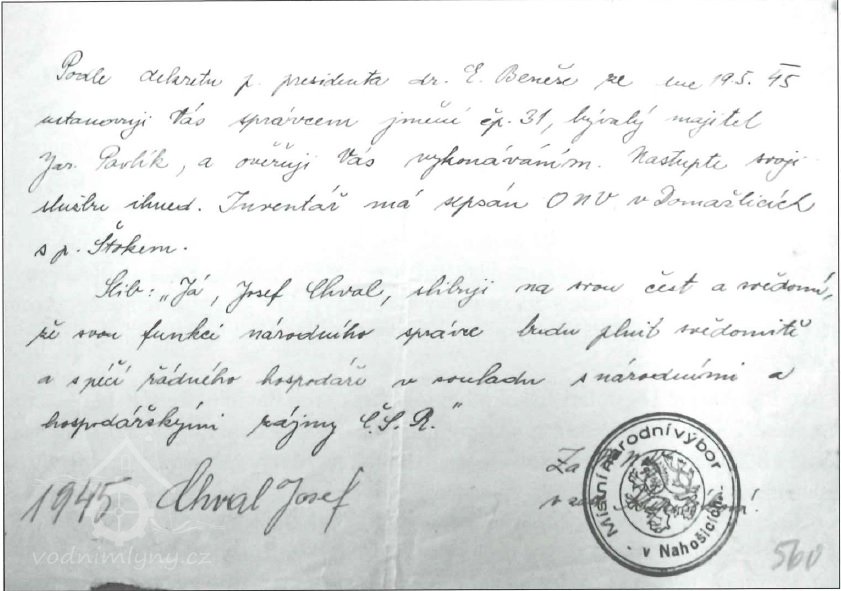 Podle dekretu p. presidenta dr. E. Beneše ze dne 19.5. 45
ustanovuji Vás správcem jmění čp. 31, bývalý majitel
Jar. Pavlík, a ověřuji Vás vykonáváním. Nastupte svoji
službu ihned. Inventář má sepsán ONV v Domažlicích
s p. Štokem.
Slib: „Já, Josef Chval, slibuji na svou čest a svědomí,
že svou funkci národního správce budu plnit svědomitě
a s péčí řádného hospodáře v souladu s národními a
hospodářskými zájmy Č.S.R."
Za
v
Místní národní výbor
v Nahošicích
1945 Chval Josef
vodnimlyny.cz
560